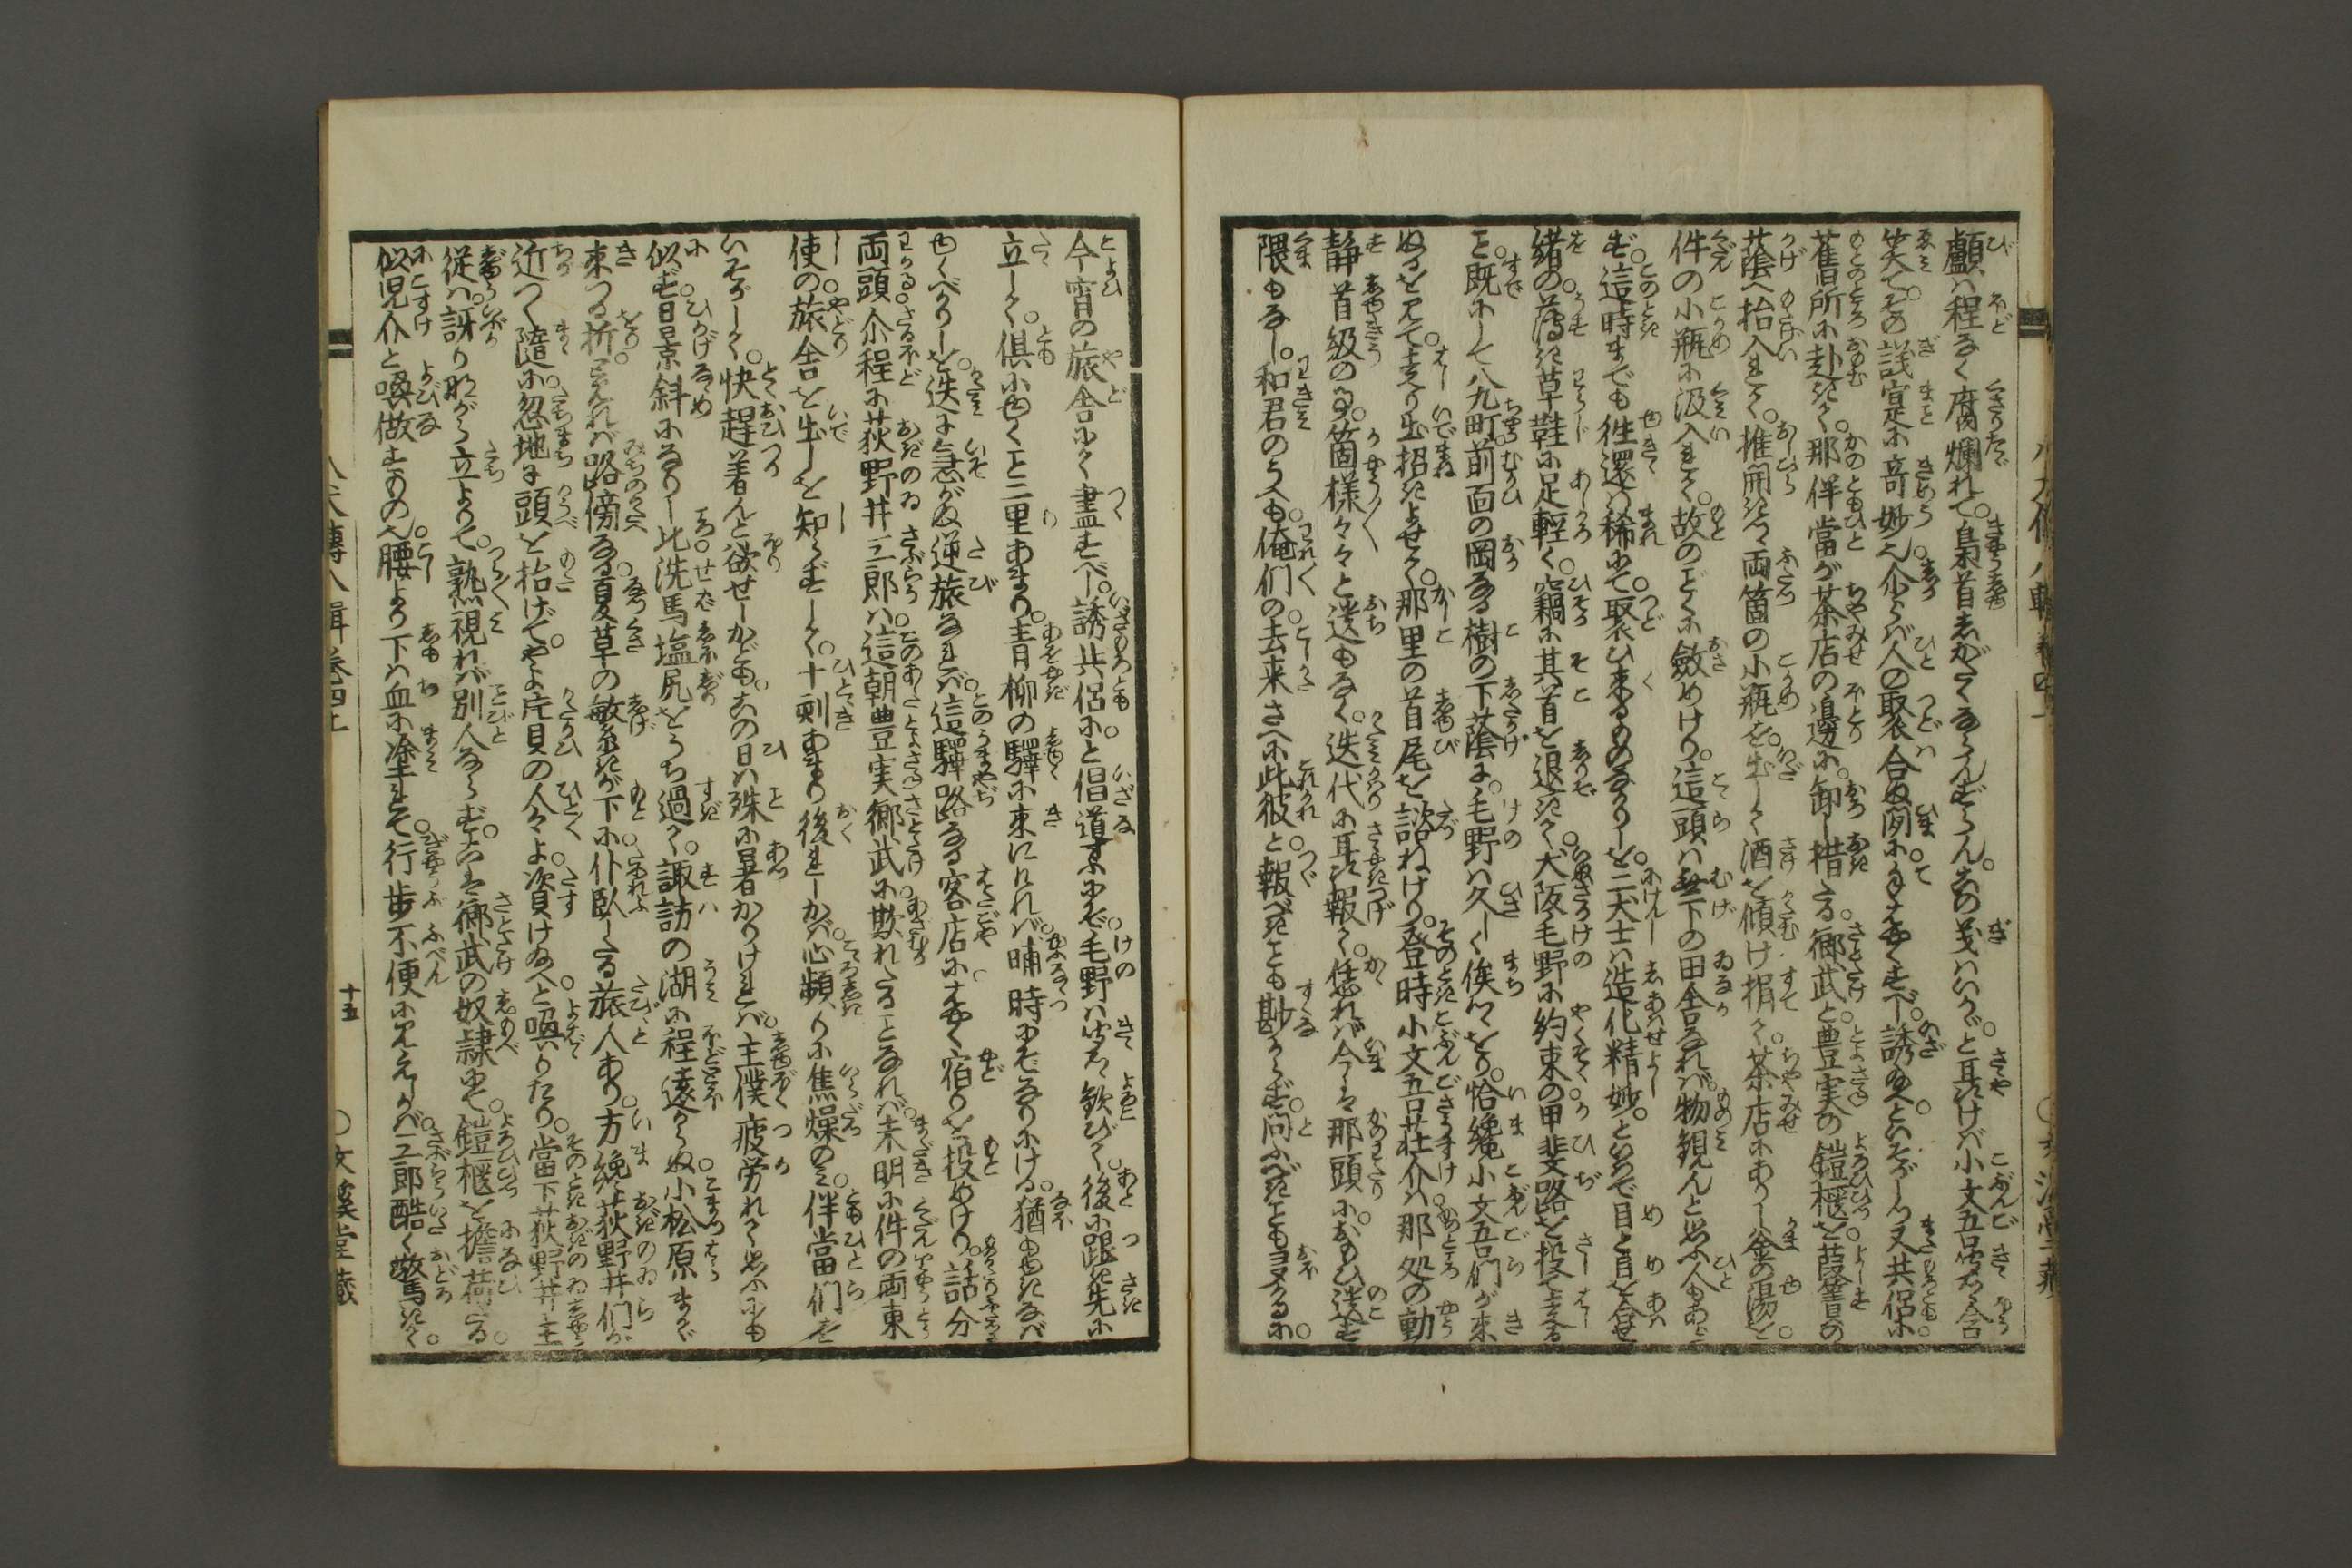 顱は程なく腐爛れて。梟首まがくならずらん。この義はいかゞ。と耳けば小文吾点頭含
笑て。その議寔に奇妙也。介らば人の聚合ぬ間に手はやくすべし。誘給へといそがしく。又共侶に
舊所に赴きて。那伴當が茶店の邊に卸し措たる。郷武と豊実の鎧櫃を葭簀の
蔭へ抬入れて。推開きつゝ両箇の小瓶を。出して酒を傾け捐て。茶店にありし釜の湯を
件の小瓶に汲入れて。故のごとくに斂めけり。這頭は無下の田舎なれば。物観んと思ふ人もあら
ず。這時までも往還は稀にて。聚ひ来るものなかりしを。二犬士は造化精妙。といひつゝ目と目を合せ
緒の。薄き草鞋に足輕く。竊に其首を退きて。犬阪毛野に約束の甲斐路を投て走る
こと。既にして八九町。前面の岡なる樹の下蔭に。毛野は久しく俟てをり。恰纔小文吾們が来
ぬるを見て。走り出招きよせて。那里の首尾を諮ねけり。登時小文吾荘介は那処の動
静。首級の事。箇様々々と遺もなく。迭代に耳き報て。恁れば今は那頭に。おもひ遺す
隈もなし。和君のうへも俺們の。去来さへに此彼と報べきことも尠からず。問ふべきことも多かるに。
今宵の旅舎にて盡すべし。誘共侶に。と倡道すにぞ。毛野は点頭歓びて。後に跟き先に
立して。倶にゆくこと三里あまり。青柳の驛に来にければ。晡時にぞなりにける。猶ゆきなば
ゆくべかりしを。迭に急がぬ逆旅なれば。這驛路なる客店に。はやく宿りを投めけり。話分
両頭。介程に荻野井三郎は。這朝豊実郷武に欺れたることなれば。未明に件の両東
使の。旅舎を出しを知らずして。十刻あまり後れしかば。心頻りに焦燥のみ。伴當們を
いそがして。快趕着んと欲せしかども。この日は殊に暑かりければ。主僕疲労れて思ふにも
似ず。日景斜になりし比。洗馬塩尻をうち過て。諏訪の湖に程遠からぬ小松原まで
来つる折。と見れば路傍なる。夏草の敏系きが下に。仆臥したる旅人あり。方纔荻野井們が
近づく隨に。忽地に頭を抬げて。やよ片貝の人々よ。資け給へと喚りたり。當下荻野井主
從は。訝りながら立よりて。熟視れば別人ならず。こは是郷武の奴隷にて。鎧櫃を擔荷たる
似児介と喚做すもの也。腰より下は血に塗れて。行歩不便に見えしかば。三郎酷く驚きて。
八犬傳八輯卷四上
十五
文溪堂藏